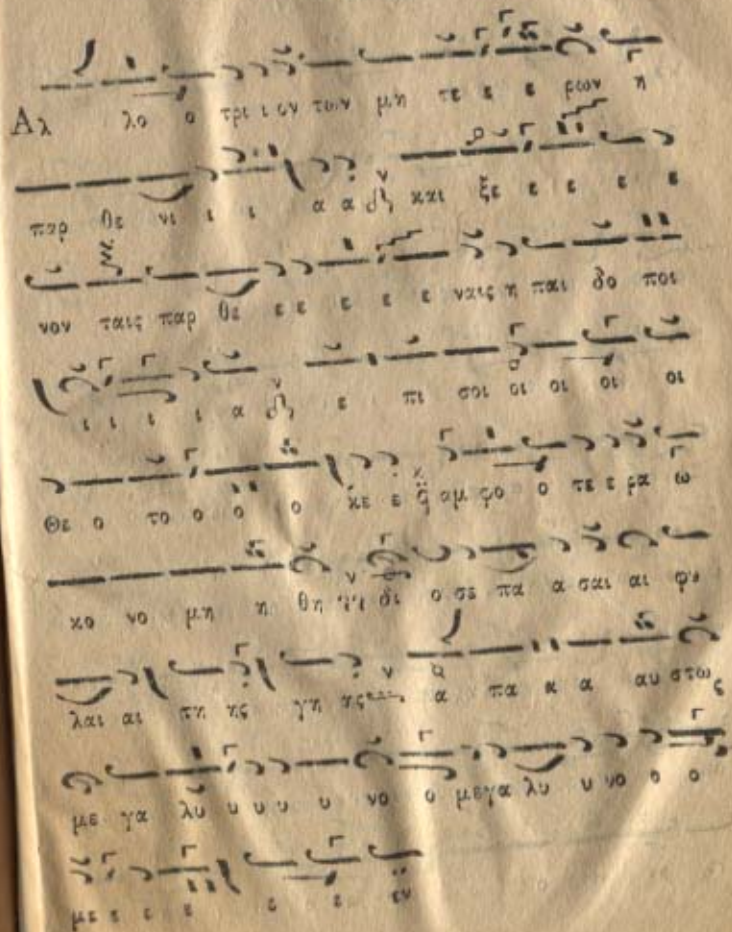 Αλ λο ο τρι ι ον των μη τε ε ε ρων η
παρ θε νι ι ι α α και ξε ε ε ε ε
νον ταις παρ θε ε ε ε ε ε ναις η παι δο ποι
ι ι ι ι α ε πι σοι οι οι οι οι
Θε ο το ο ο ο κε ε αμ φο ο τε ε ρα ω
κο νο μη η θη δι ο σε πα α σαι αι φυ
λαι αι τη ης γη ης α πα α α αυ στως
με γα λυ υ υ υ υ νο ο μεγα λυ υ νο ο ο
με ε ε ε ε ε εν